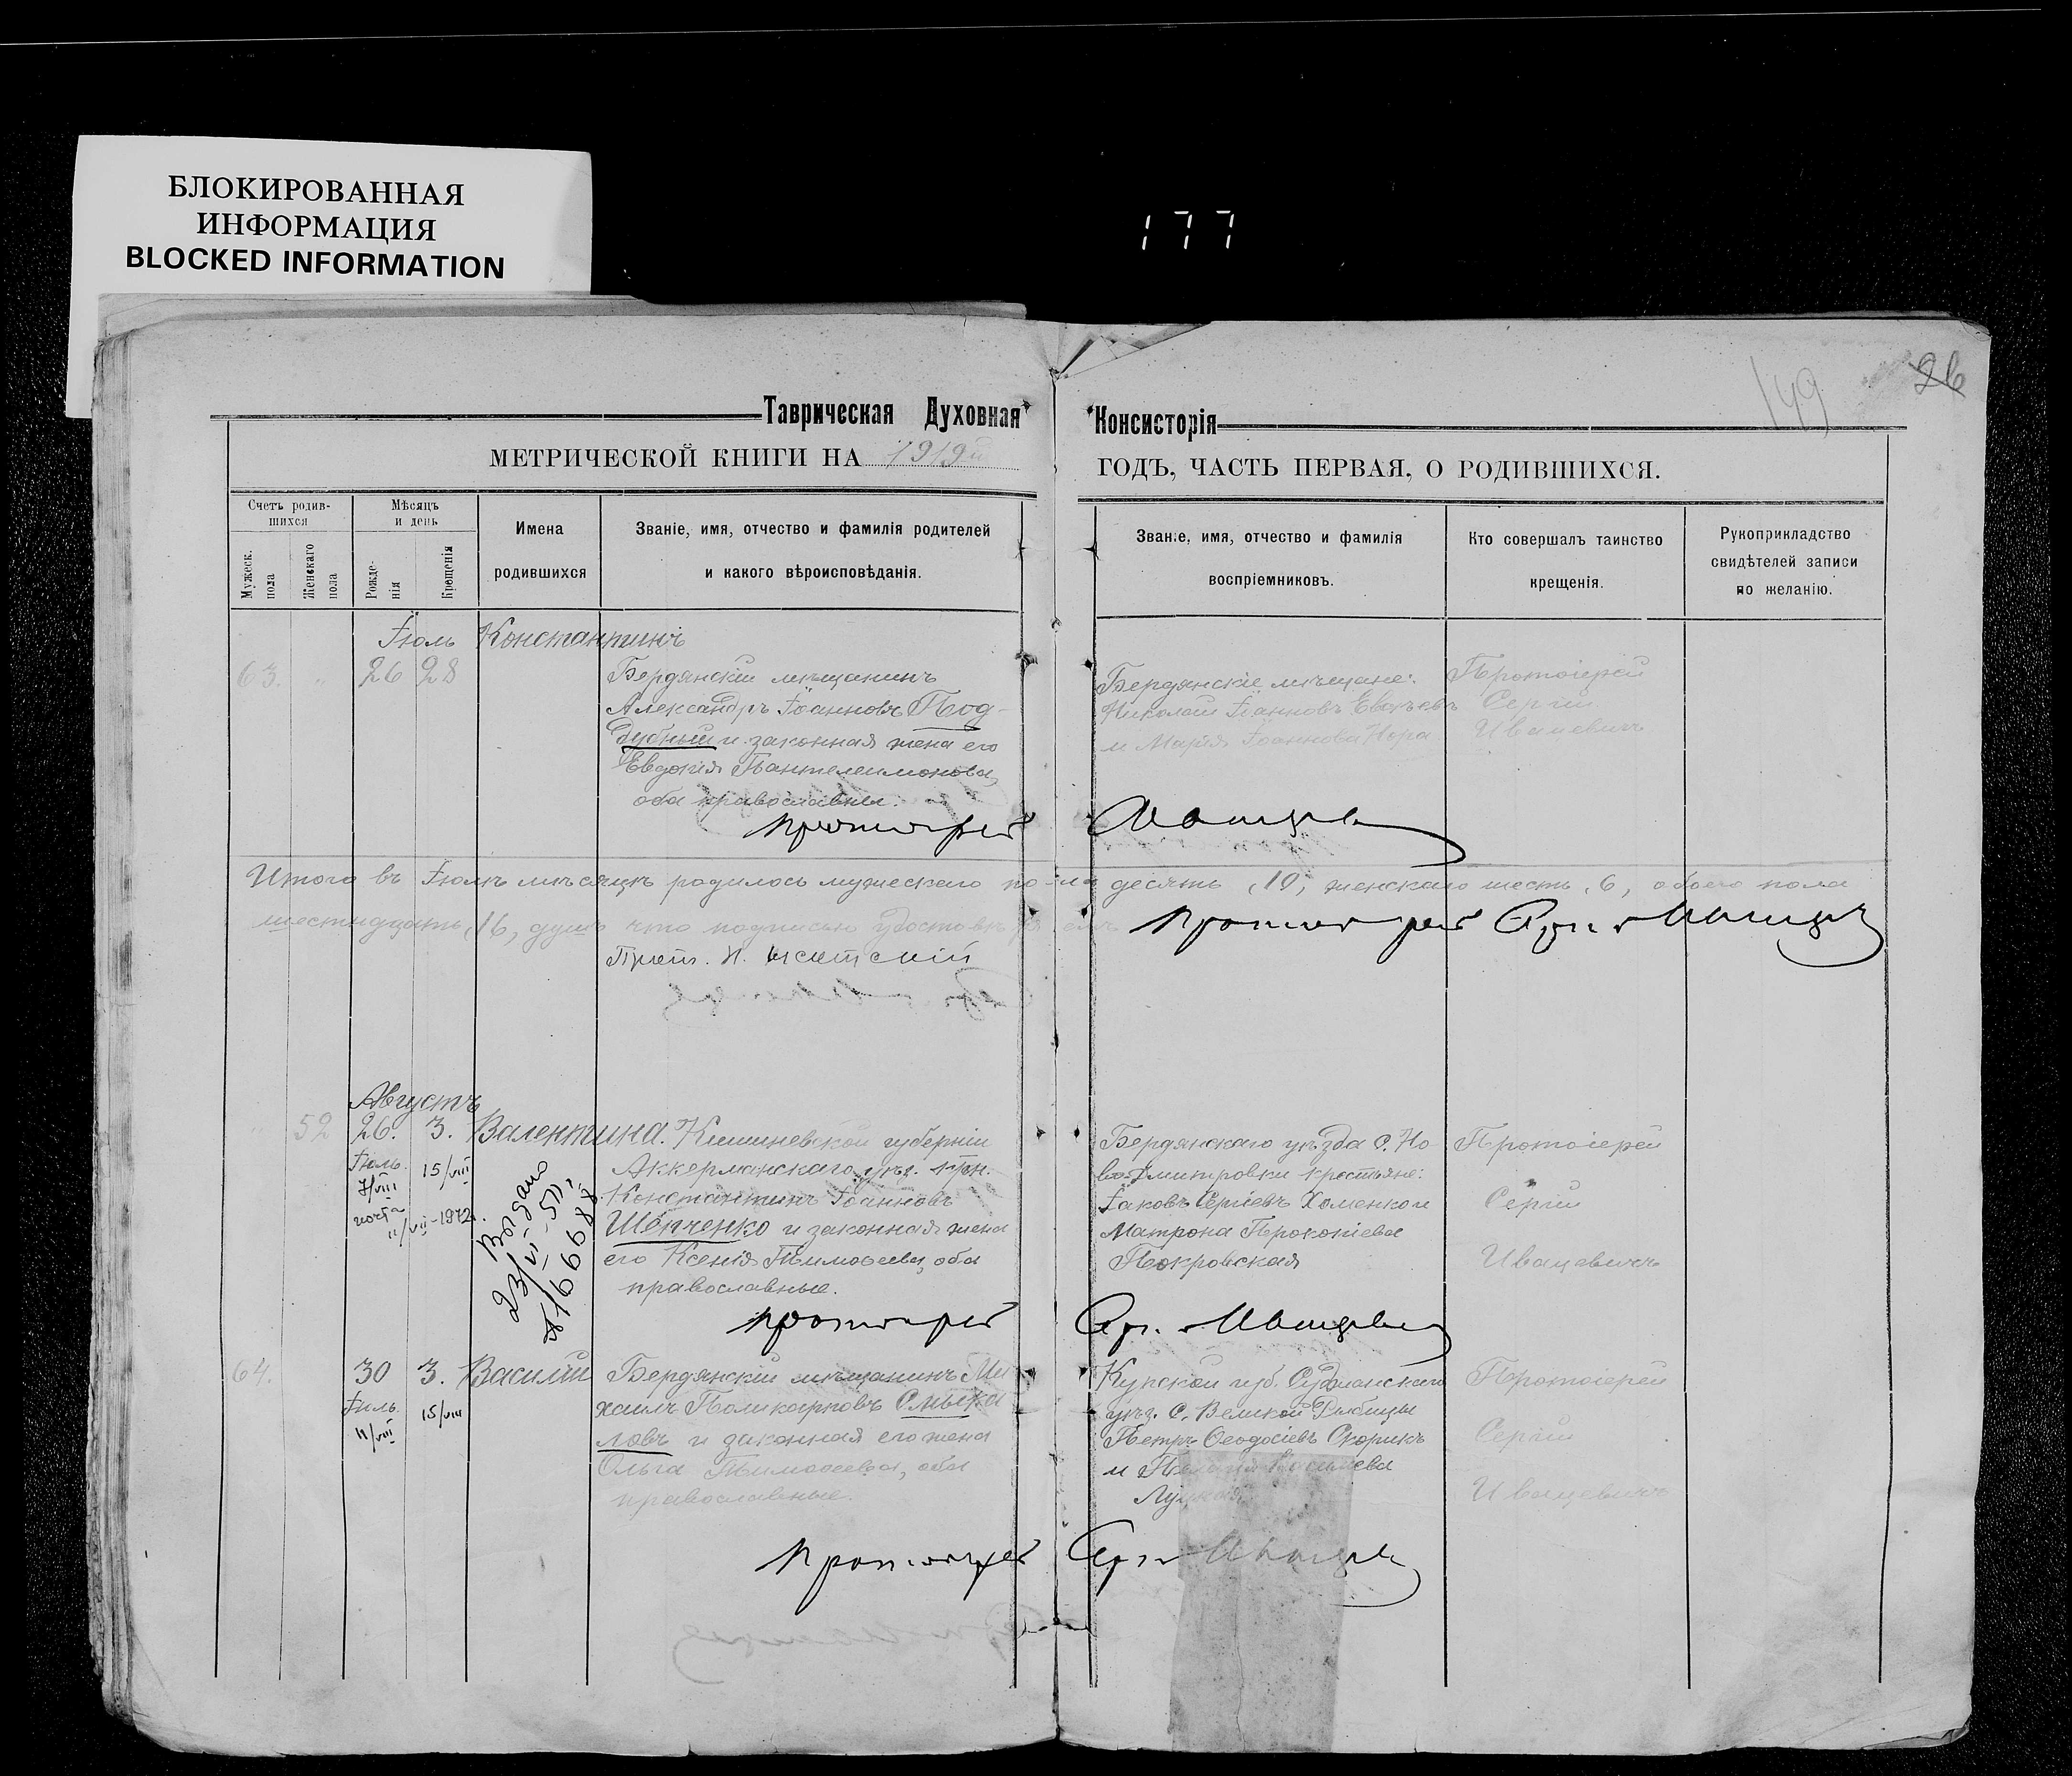 БЛОКИРОВАННАЯ
ИНФОРМАЦИЯ
BLOCKED INFORMATION
177
149
26
Таврическая Духовная Консисторія
МЕТРИЧЕСКОЙ КНИГИ НА 1919й ГОДЪ, ЧАСТЬ ПЕРВАЯ, О РОДИВШИХСЯ.
Счетъ родив-
шихся
Мужеск.
пола
Женскаго
пола
Мѣсяцъ
и день
Рожде-
нія
Крещенія
Имена
родившихся
Званіе, имя, отчество и фамилія родителей
и какого вѣроисповѣданія.
Званіе, имя, отчество и фамилія
воспріемниковъ.
Кто совершалъ таинство
крещенія.
Рукоприкладство
свидѣтелей записи
по желанію.
Іюль
63. " 26 28
Константинъ
Бердянскій мѣщанинъ
Александръ Іоанновъ Под-
дубный и законная жена его
Евдокія Пантелеимонова,
оба православны.
Бердянскіе мѣщане:
Николай Іоанновъ
и Марія Іоаннова
Протоіерей
Сергій
Ивацевичъ
протоіерей Ивацевичъ
Итого въ Іюлѣ мѣсяцѣ родилось мужескаго пола десять, 10, женскаго шесть, 6, обоего пола
шестнадцать, 16, душъ что подписью удостовѣряемъ
протоіерей Сергій Ивацевичъ
Прот. Н.
Августъ
" 52 26. 3.
Іюль.
7/VIII
15/VIII
почта
11/VII-1972г.
Выдано
23/VI-51г,
Валентина.
Кишиневской губерніи
Аккерманскаго уѣз.
Константинъ Іоанновъ
Шевченко и законная жена
его Ксенія Тимоѳеева, оба
православные.
Бердянскаго уѣзда с. Но
во-Дмитровки крестьяне:
Іаковъ Сергіевъ Хоменко и
Матрона Прокопіева
Покровская
Протоіерей
Сергій
Ивацевичъ
протоіерей Сергій Ивацевичъ
64. 30 3.
Іюль.
11/VIII
15/VIII
Василій
Бердянскій мѣщанинъ Ми
хаилъ Поликарповъ Смыка
ловъ и законная его жена
Ольга Тимоѳеева, оба
православные.
Курской губ. Суджанскаго
уѣз. с. Великой Рыбицы
Петръ Ѳеодосіевъ Скорикъ
и
Протоіерей
Сергій
Ивацевичъ
протоіерей Сергій Ивацевичъ